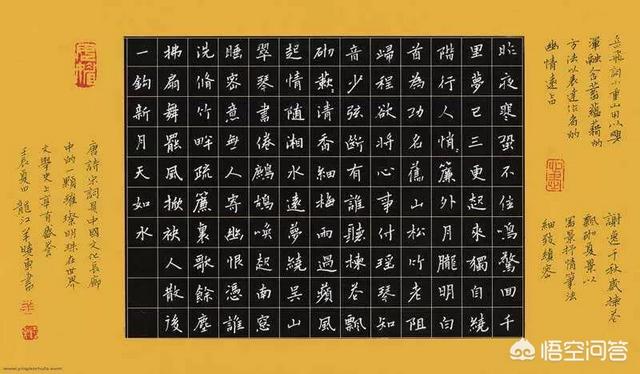 岳飛詞小重山用以
渾融含蓄蘊藉的
方法以表達作者的
幽情遠旨
謝逸千秋歲楝花
飄砌夏景以
寫景抒情筆法
細致縝密
昨夜寒蛩不住鳴驚回千
里夢已三更起來獨自繞
階行人悄悄簾外月朧明白
首為功名舊山松竹老阻
歸程欲將心事付瑤琴知
音少弦斷有誰聽楝花飄
砌蔌蔌清香細梅雨過蘋風
起情隨湘水遠夢繞吳山
翠琴書倦鷓鴣喚起南窓
睡密意無人寄幽恨憑誰
洗脩竹畔疏簾裏歌餘塵
拂扇舞罷風掀袂人散後
一鈎新月天如水
唐詩宋詞是中國文化長廊
中的一顆璀璨明珠在世界
文學史上享有盛譽
壬辰夏日龍江書
悟空问答